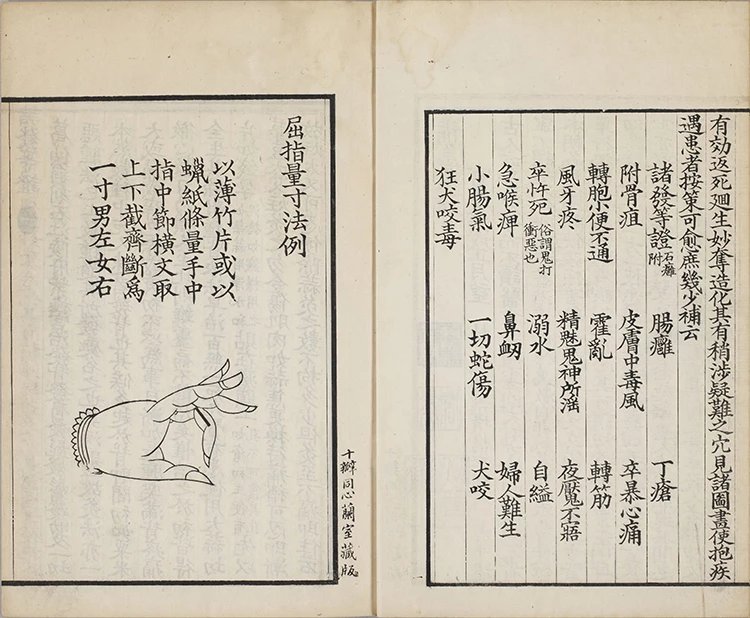 有効返死廻生妙奪造化其有稍涉疑難之穴見諸圖畫使抱疾
遇患者按策可愈庶幾少補云
諸發等證 石癰附 腸癰 丁瘡
附骨疽 皮膚中毒風 卒暴心痛
轉胞小便不通 霍亂 轉筋
風牙疼 精魅鬼神所淫 夜魘不寤
卒忤死 俗謂鬼打衝惡也 溺水 自縊
急喉痺 鼻衂 婦人難生
小腸氣 一切蛇傷 犬咬
狂犬咬毒
十瓣同心蘭室藏版
屈指量寸法例
以薄竹片或以
蠟紙條量手中
指中節橫文取
上下截齊斷為
一寸男左女右